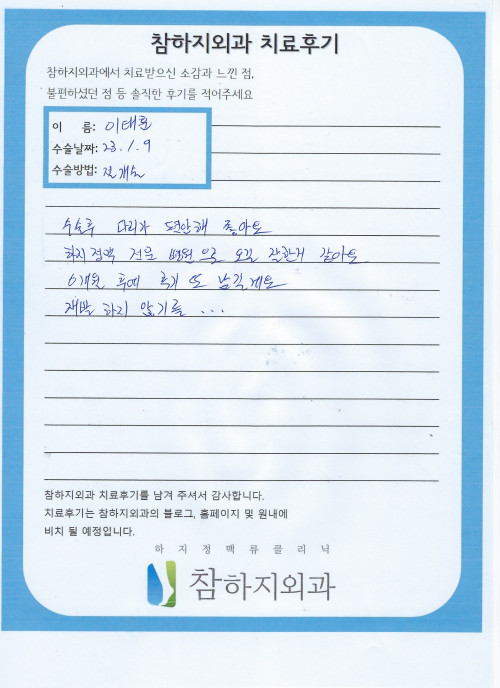 참하지외과 치료후기
참하지외과에서 치료받으신 소감과 느낀 점,
불편하셨던 점 등 솔직한 후기를 적어주세요
이 름: 이태훈
수술날짜: 23. 1. 9
수술방법: 절개술
수술후 다리가 편안해 좋아요
하지정맥 전문 병원으로 오길 잘한거 같아요
6개월 후에 후기 또 남길게요
재발 하지 않기를 ...
참하지외과 치료후기를 남겨 주셔서 감사합니다.
치료후기는 참하지외과의 블로그, 홈페이지 및 원내에
비치 될 예정입니다.
하지정맥류클리닉
참하지외과